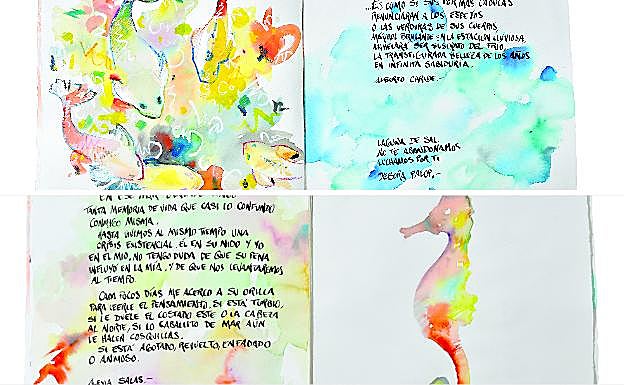 ...ES COMO SI SUS FORMAS CADUCAS
RENUNCIARAN A LOS ESPEJOS
O LAS VERDURAS DE SUS CUERPOS,
MARMOL BRILLANTE EN LA ESTACIÓN LLUVIOSA,
ANHELARA SER SUSPIRO DEL FRIO,
LA TRANSFIGURADA BELLEZA DE LOS AÑOS
EN INFINITA SABIDURIA.
ALBERTO CARIDE.-
LAGUNA DE SAL.
NO TE ABANDONAMOS
LUCHAMOS POR TI
DEBORA PALOP.-
TANTA MEMORIA DE VIDA QUE CASI LO CONFUNDO
CONMIGO MISMA.
HASTA VIVIMOS AL MISMO TIEMPO UNA
CRISIS EXISTENCIAL. ÉL EN SU NIDO Y YO
EN EL MIO, NO TENGO DUDA DE QUE SU PENA
INFLUYÓ EN LA MÍA, Y DE QUE NOS LEVANTAREMOS
AL TIEMPO.
CADA POCOS DÍAS ME ACERCO A SU ORILLA
PARA LEERLE EL PENSAMIENTO, SI ESTÁ TURBIO,
SI LE DUELE EL COSTADO ESTE O LA CABEZA
AL NORTE, SI LO CABALLITO DE MAR AÚN
LE HACEN COSQUILLAS.
SI ESTÁ AGOTADO, REVUELTO, ENFADADO
O ANIMOSO.
ALEXIA SALAS.-